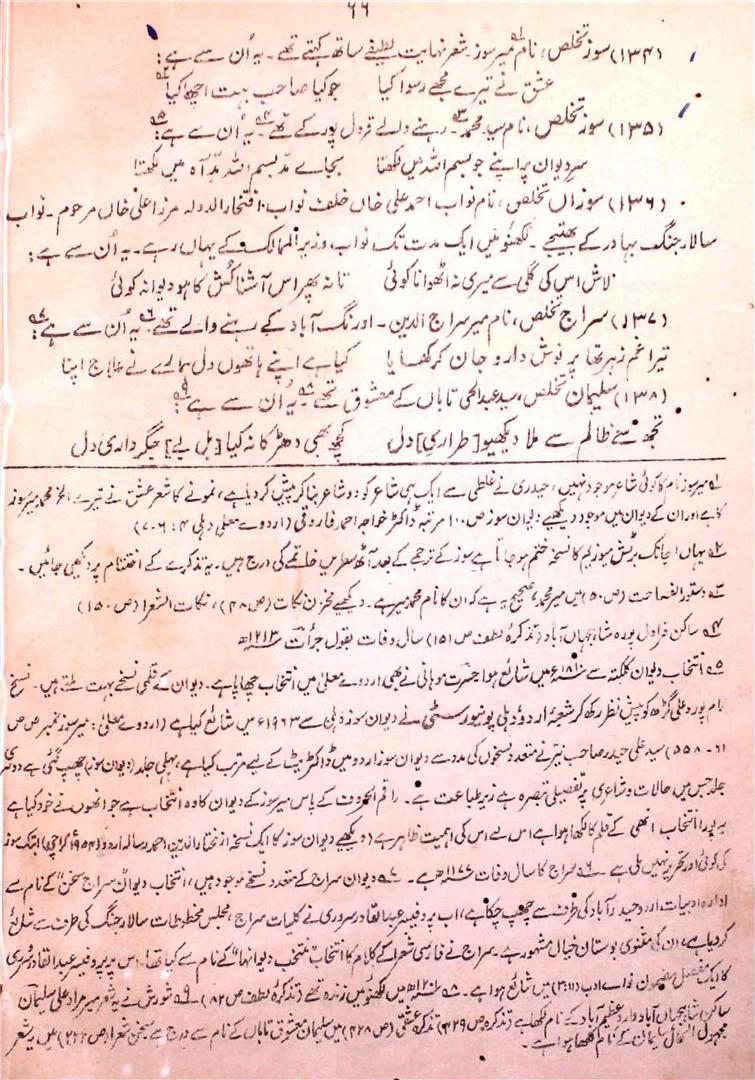 ۶۶
(۱۳۴) سوز تخلص، نام میر سوز۔ شعر نہایت لطیفے ساتھ کہتے تھے۔ یہ اُن سے ہے:
عشق نے تیرے مجھے رسوا کیا جو کیا صاحب بہت اچھا کیا
(۱۳۵) سوز تخلص، نام سید محمد۔ رہنے والے قرول پور کے تھے۔ یہ اُن سے ہے:
سرِ دیوان پر اپنے جو بسم اللہ میں لکھتا بجاے مدِّ بسم اللہ مدِّ آہ میں لکھتا
(۱۳۶) سوزاں تخلص، نام نواب احمد علی خاں خلف نواب افتخار الدولہ مرزا علی خاں مرحوم۔ نواب
سالار جنگ بہادر کے بھتیجے۔ لکھنؤ میں ایک مدت تک نواب وزیر الممالک کے یہاں رہے۔ یہ اُن سے ہے:
لاش اس کی گلی سے میری نہ اٹھوانا کوئی تا نہ پھر اس آشنا کُش کا ہو دیوانہ کوئی
(۱۳۷) سراج تخلص، نام میر سراج الدین۔ اورنگ آباد کے رہنے والے تھے۔ یہ اُن سے ہے:
تیرا غم زہر تھا پر نوش دارو جان کر کھایا کیا ہے اپنے ہاتھوں دل ہمارے نے علاج اپنا
(۱۳۸) سلیمان تخلص، سید عبدالحی تاباں کے معشوق تھے۔ یہ اُن سے ہے:
تجھ سے ظالم سے ملا دیکھیو [طراری] دل کچھ بھی دھڑکا نہ کیا [بل بے] جگر داری دل
۱ میر سوز نام کا کوئی شاعر موجود نہیں، حیدری نے غلطی سے ایک ہی شاعر کو دو شاعر بنا کر پیش کر دیا ہے، نمونے کا شعر عشق نے تیرے الخ محمد میر سوز
کا ہے اور ان کے دیوان میں موجود دیکھیے دیوان سوز ص ۱۰۰ مرتبہ ڈاکٹر خواجہ احمد فاروقی (اردوے معلی دہلی ۴: ۶-۷)
۲ یہاں اچانک برٹش میوزیم کا نسخہ ختم ہو جاتا ہے سوز کے ترجمے کے بعد آٹھ سطریں خاتمے کی درج ہیں۔ یہ تذکرے کے اختتام پر دیکھی جائیں۔
۳ دستور الفصاحت (ص ۵۰) میں میر محمد، صحیح یہ ہے کہ ان کا نام محمد میر ہے۔ دیکھیے مخزن نکات (ص ۴۸)، نکات الشعرا (ص ۱۵۰)
۴ ساکن قراول پورہ شاہجہاں آباد (تذکرۂ لطف ص ۱۵۱) سال وفات بقول جرأت ۱۲۱۳ھ
۵ انتخاب دیوان کلکتہ سے ۱۸۱۰ء میں شائع ہوا حسرت موہانی نے بھی اردوے معلیٰ میں انتخاب چھاپا ہے۔ دیوان کے قلمی نسخے بہت ملتے ہیں۔ نسخ
رام پور و علی گڑھ کو پیش نظر رکھ کر شعبۂ اردو دہلی یونیورسٹی نے دیوان سوز دہلی سے ۱۹۶۳ء میں شائع کیا ہے (اردوے معلیٰ: میر سوز نمبر ص ص
۶۱ - ۵۵۸) سید علی حیدر صاحب نیّر نے متعدد نسخوں کی مدد سے دیوان سوز اردو میں ڈاکٹریٹ کے لیے مرتب کیا ہے، پہلی جلد (دیوان سوز) چھپ گئی ہے دوسری
جلد جس میں حالات و شاعری پر تفصیلی تبصرہ ہے زیر طباعت ہے۔ راقم الحروف کے پاس میر سوز کے دیوان کا وہ انتخاب ہے جو انھوں نے خود کیا ہے
یہ پورا انتخاب انھی کے قلم کا لکھا ہوا ہے اس لیے اس کی اہمیت ظاہر ہے (دیکھیے دیوان سوز کا ایک نسخہ از مختار الدین احمد رسالہ اردو (۱۹۵۴ء کراچی) ابتک سوز
کی کوئی اور تحریر نہیں ملی ہے ۶ سراج کا سال وفات ۱۱۷۷ھ ہے۔ ۷ دیوان سراج کے متعدد نسخے موجود ہیں، انتخاب دیوان "سراج سخن" کے نام سے
ادارہ ادبیات اردو حیدرآباد کی طرف سے چھپ چکا ہے، اب پروفیسر عبدالقادر سروری نے کلیات سراج، مجلس مخطوطات سالار جنگ کی طرف سے شائع
کر دیا ہے، ان کی مثنوی بوستان خیال مشہور ہے۔ سراج نے فارسی شعرا کے کلام کا انتخاب "منتخب دیوانہا" کے نام سے کیا تھا۔ اس پر پروفیسر عبدالقادر سروری
کا ایک مفصل مضمون نواے ادب (۱۱:۳) میں شائع ہوا ہے۔ ۸ ۱۲۰۱ھ میں لکھنؤ میں زندہ تھے (تذکرۂ لطف ص ۸۲)۔ ۹ شورش نے یہ شعر میر مراد علی سلیمان
ساکن شاہجہاں آباد وارد عظیم آباد کے نام لکھا ہے (تذکرہ ص ۴۲۹) تذکرہ عشقی (ص ۴۲۸) میں سلیمان معشوق تاباں کے نام سے درج ہے۔ سخن شعرا (ص ۲۲۶) میں یہ شعر
مجہول الحال سلیمان کے نام لکھا ہوا ہے۔